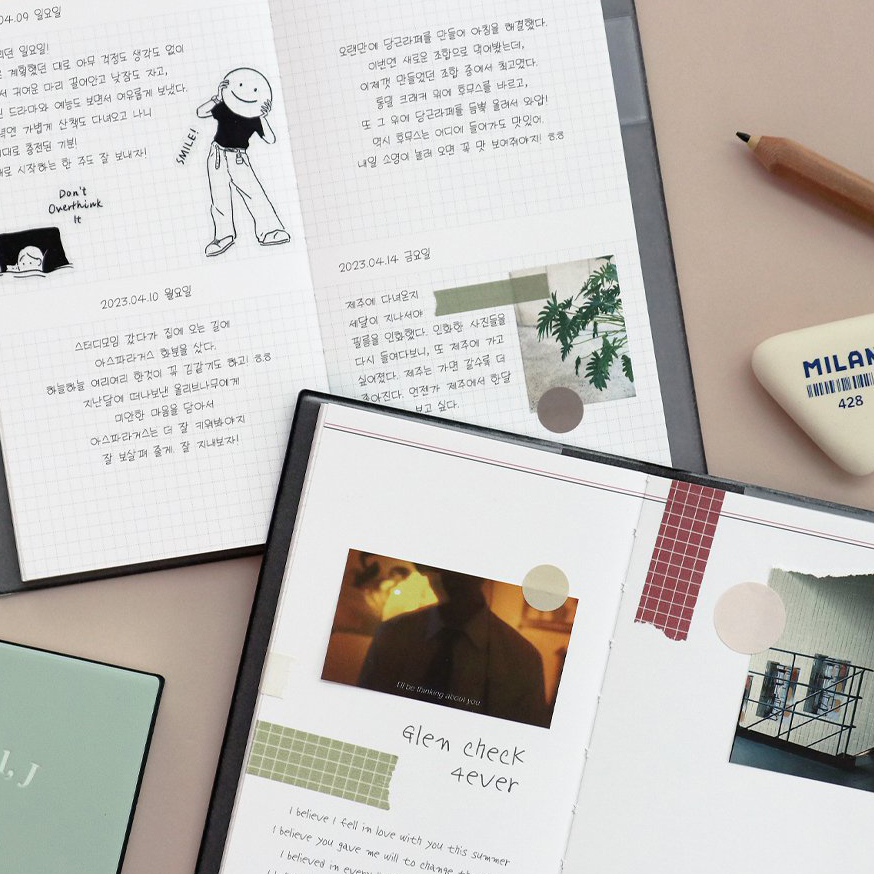 04.09 일요일
일요일!
계획했던 대로 아무 걱정도 생각도 없이
귀여운 마리 끌어안고 낮잠도 자고,
드라마와 예능도 보면서 여유롭게 보냈다.
가볍게 산책도 다녀오고 나니
충전된 기분!
시작하는 한 주도 잘 보내자!
SMILE!
Don't
Overthink
It
2023.04.10 월요일
스터디모임 갔다가 집에 오는 길에
아스파라거스 화분을 샀다.
하늘하늘 여리여리 한것이 꼭 김같기도 하고! ㅎㅎ
지난달에 떠나보낸 올리브나무에게
미안한 마음을 담아서
아스파라거스는 더 잘 키워봐야지
잘 보살펴 줄게. 잘 지내보자!
오랜만에 당근라페를 만들어 아침을 해결했다.
이번엔 새로운 조합으로 먹어봤는데,
이제껏 만들었던 조합 중에서 최고였다.
통밀 크래커 위에 후무스를 바르고,
또 그 위에 당근라페를 듬뿍 올려서 와앙!
역시 후무스는 어디에 들어가도 맛있어.
내일 소영이 놀러 오면 꼭 맛 보여줘야지! ㅎㅎ
2023.04.14 금요일
제주에 다녀온지
세달이 지나서야
필름을 인화했다. 인화한 사진들을
다시 들여다보니, 또 제주에 가고
싶어졌다. 제주는 가면 갈수록 더
좋아진다. 언젠가 제주에서 한달
보고 싶다.
MILAN
428
I'll be thinking about you
Glen check
4ever
I believe I fell in love with you this summer
I believe you gave me will to change
I believed in every
J